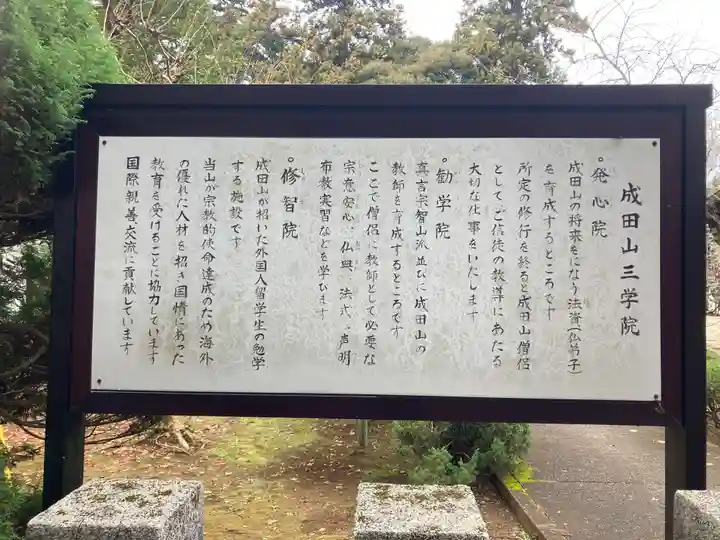 成田山三学院
○発心院
成田山の将来をになう法資(仏弟子)
を育成するところです
所定の修行を終ると成田山僧侶
としてご信徒の教導にあたる
大切な仕事をいたします
○勧学院
真言宗智山派並びに成田山の
教師を育成するところです
ここで僧侶に教師として必要な
宗意安心、仏典、法式、声明
布教実習などを学びます
○修智院
成田山が招いた外国人留学生の勉学
する施設です
当山が宗教的使命達成のため海外
の優れた人材を招き国情にあった
教育を受けることに協力しています
国際親善、交流に貢献しています